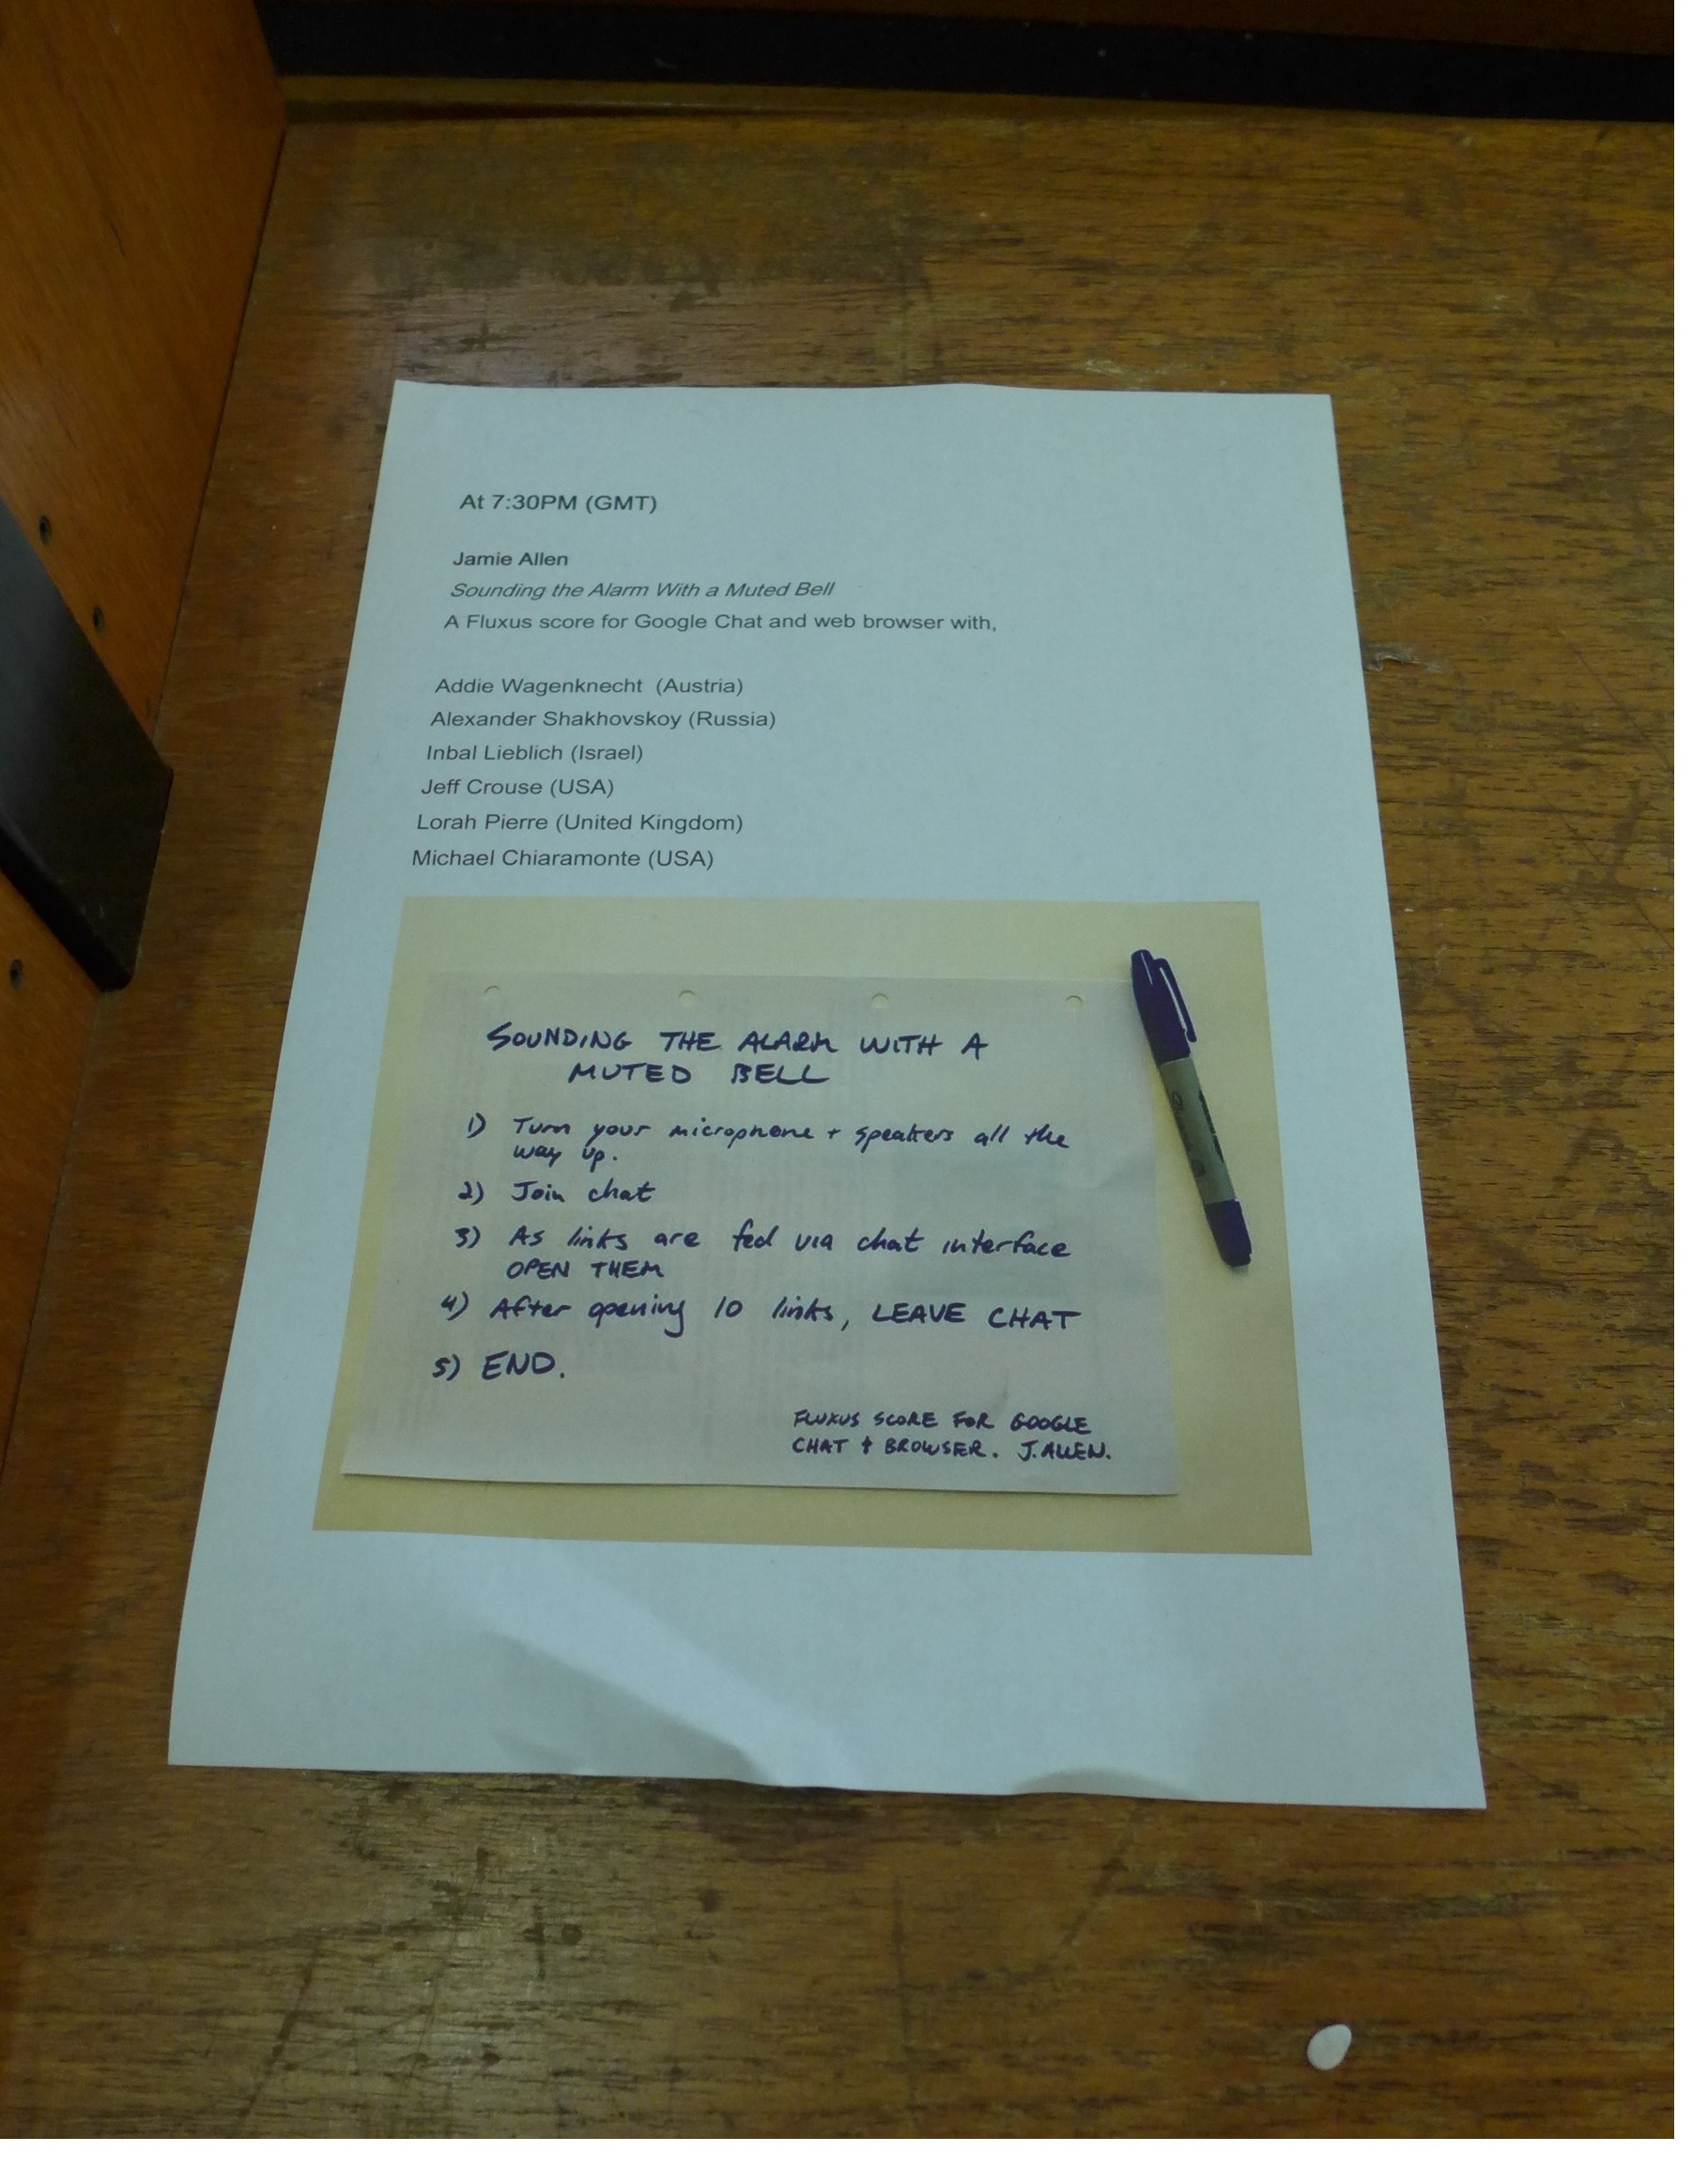 At 7:30PM (GMT)
Jamie Allen
Sounding the Alarm With a Muted Bell
A Fluxus score for Google Chat and web browser with,
Addie Wagenknecht (Austria)
Alexander Shakhovskoy (Russia)
Inbal Lieblich (Israel)
Jeff Crouse (USA)
Lorah Pierre (United Kingdom)
Michael Chiaramonte (USA)
SOUNDING THE ALARM WITH A
MUTED BELL
1) Turn your microphone + speakers all the
way up.
2) Join chat
3) As links are fed via chat interface
OPEN THEM
4) After opening 10 links, LEAVE CHAT
5) END.
FLUXUS SCORE FOR GOOGLE
CHAT + BROWSER. J.ALLEN.